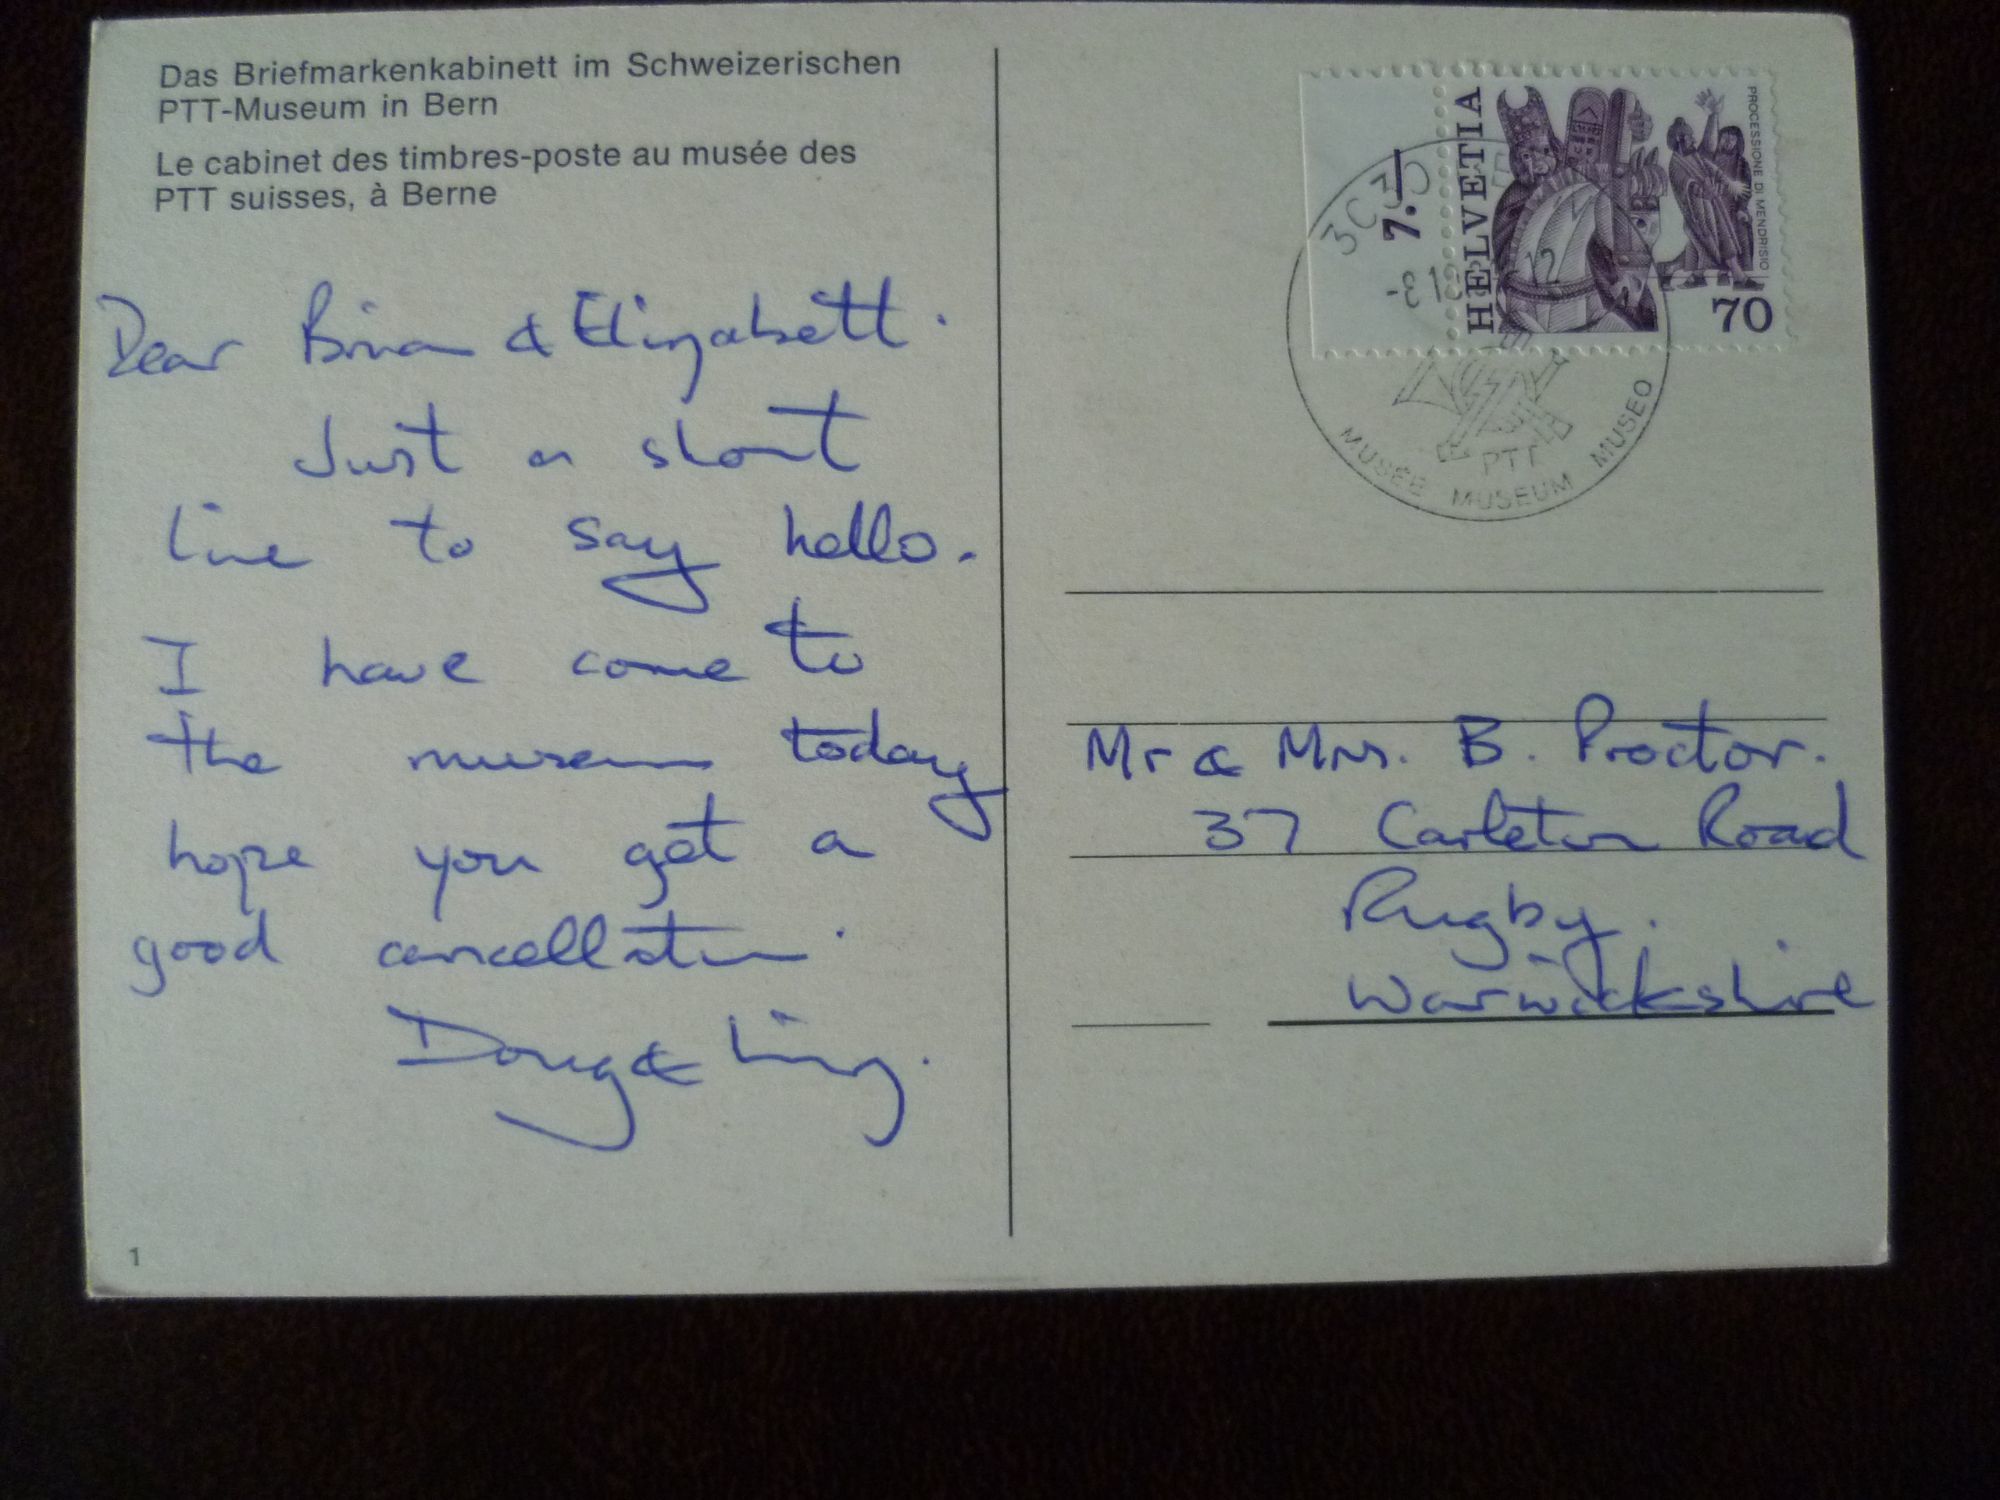 Das Briefmarkenkabinett im Schweizerischen
PTT-Museum in Bern
Le cabinet des timbres-poste au musée des
PTT suisses, à Berne
Dear Brian & Elizabeth.
Just a short
line to say hello.
I have come to
the museum today
hope you get a
good cancellation.
Doug &
1
7.—
HELVETIA
PROCESSIONE DI MENDRISIO
70
PTT
MUSÉE MUSEUM MUSEO
Mr & Mrs. B. Proctor.
37 Carleton Road
Rugby.
Warwickshire